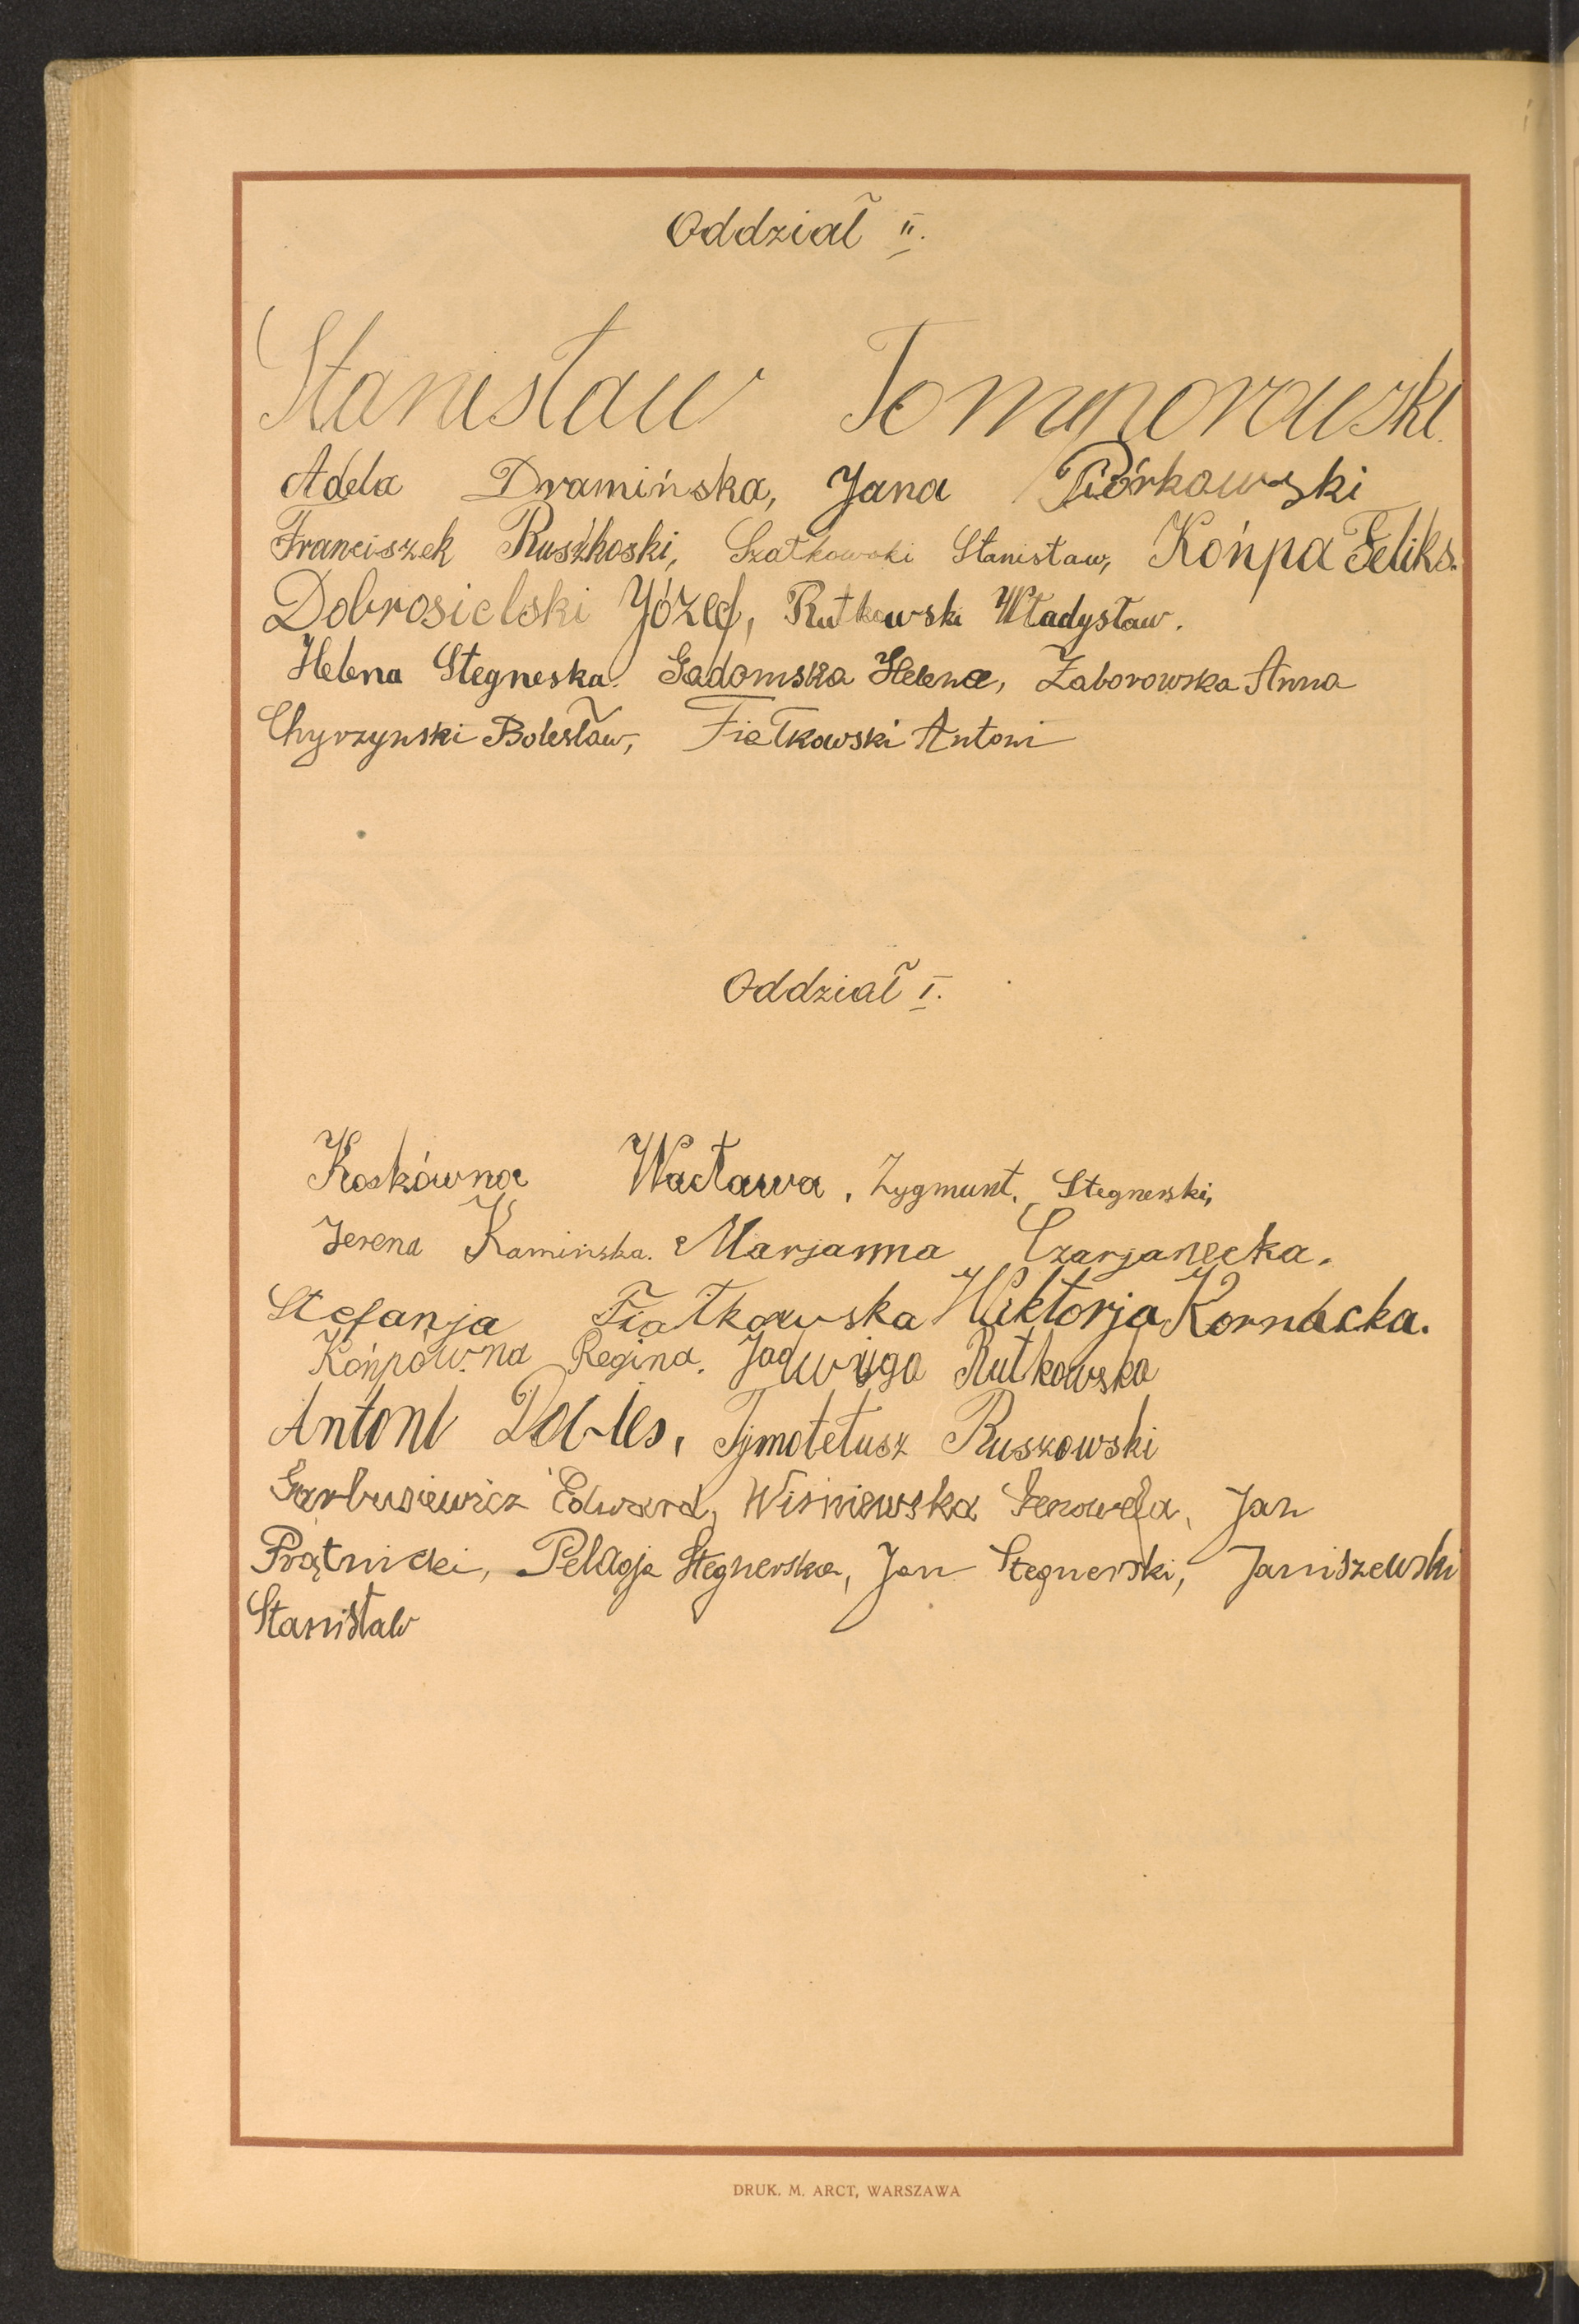 Oddział II.
Stanisław Tomporowski
Adela Dramińska, Jana Piórkowski
Franciszek Ruszkoski, Szatkowski Stanisław, Końpa Feliks.
Dobrosielski Józef, Rutkowski Władysław.
Helena Stegneska. Gadomska Helena, Zaborowska Anna
Chyrzynski Bolesław, Fiałkowski Antoni
Oddział I.
Koskówna Wacława, Zygmunt, Stegnerski,
Jerena Kamińska. Marjanna Czarjanecka.
Stefanja Fiatkowska Wiktorja Kornácka.
Końpówna Regina. Jadwiga Rutkowska
Antoni Tymoteusz Ruszowski
Garbusiewicz Edward, Wiśniewska Genowefa, Jan
Prątnicki, Pelagja Stegnerska, Jan Stegnerski, Janiszewski
Stanisław
DRUK. M. ARCT, WARSZAWA